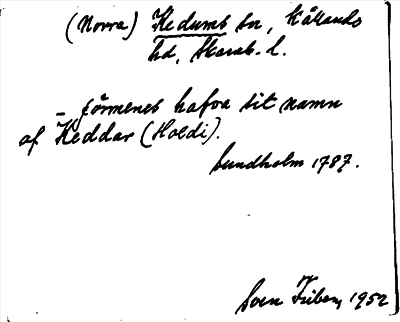 (Norra) Kedums sn, Kållands
hd, Skarab. l.
_ förmenes hafva sit namn
af Keddar (Hoedi).
Sundholm 1787.
Sven Friberg 1952